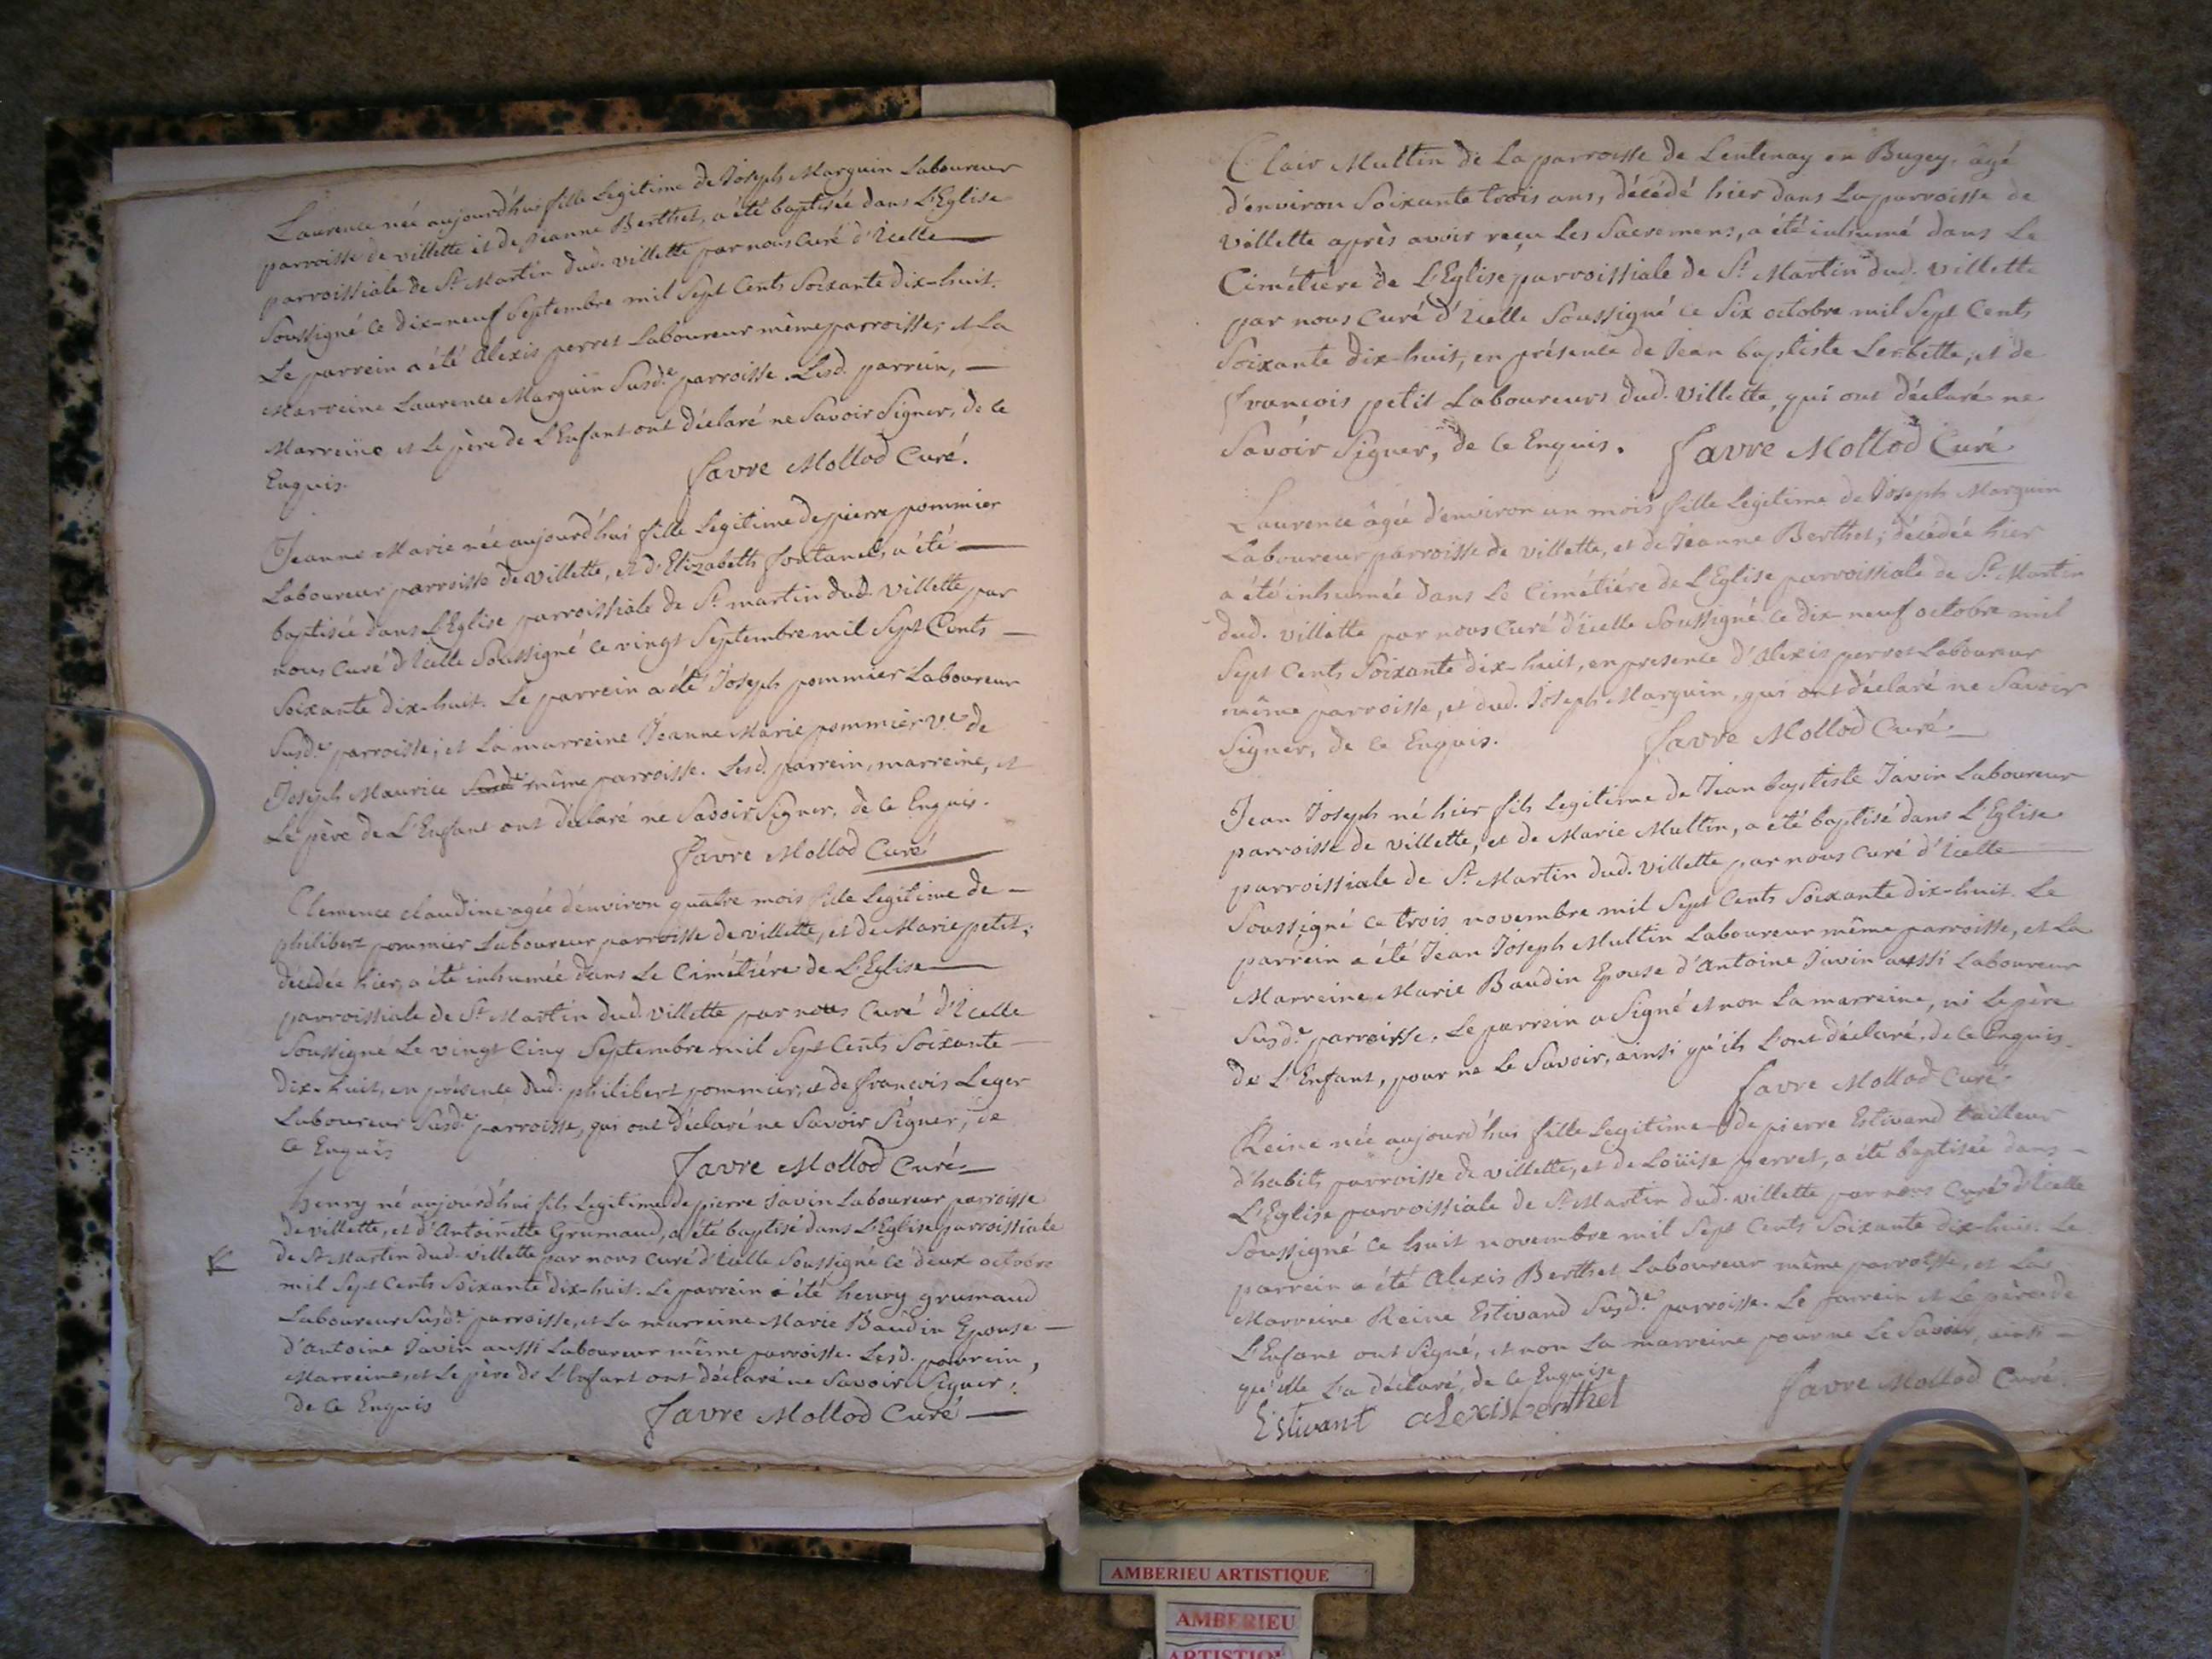 Laurence née aujourd'hui fille Legitime de Joseph Marguin Laboureur
parroisse de villette et de Jeanne Berthet, a été baptisée dans L'Eglise
parroissiale de St Martin dud. villette par nous Curé d'Icelle
Soussigné Ce dix-neuf Septembre mil Sept Cents Soixante dix-huit.
Le parrein a été Alexis perret Laboureur même parroisse, et La
Marreine Laurence Marguin Susd.e parroisse. Lesd. parrein,
Marreine et Le père de L'Enfant ont déclaré ne Savoir Signer, de Ce
Enquis.
favre Mollod Curé.
Jeanne Marie née aujourd'hui fille Legitime de pierre pommier
Laboureur parroisse de villette, et d'Elizabeth fontanel, a été
baptisée dans L'Eglise parroissiale de St martin dud. villette par
nous Curé d'Icelle Soussigné Ce vingt Septembre mil Sept Cents
Soixante dix-huit. Le parrein a été Joseph pommier Laboureur
Susd.e parroisse; et La marreine Jeanne Marie pommier v.e de
Joseph Maurice même parroisse. Lesd. parrein, marreine, et
Le père de L'Enfant ont déclaré ne Savoir Signer, de Ce Enquis.
favre Mollod Curé
Clemence claudine agée d'environ quatre mois fille Legitime de
philibert pommier Laboureur parroisse de villette, et de Marie petit;
décédée hier, a été inhumée dans Le Cimétiére de L'Eglise
parroissiale de St Martin dud. villette par nous Curé d'Icelle
Soussigné Le vingt Cinq Septembre mil Sept Cents Soixante
dix-huit, en présence dud. philibert pommier, et de françois Leger
Laboureur Susd.e parroisse, qui ont déclaré ne Savoir Signer, de
Ce Enquis
favre Mollod Curé
henry né aujourd'hui fils Legitime de pierre Javin Laboureur parroisse
de villette, et d'Antoinette Grumaud, a été baptisé dans L'Eglise parroissiale
de St Martin dud. villette par nous Curé d'Icelle Soussigné Ce deux octobre
mil Sept Cents Soixante dix-huit. Le parrein a été henry grumaud
Laboureur Susd.e parroisse, et La marreine Marie Baudin Epouse
d'Antoine Javin aussi Laboureur même parroisse. Lesd. parrein,
Marreine, et Le père de L'Enfant ont déclaré ne Savoir Signer,
de Ce Enquis
favre Mollod Curé
Clair Multin de La parroisse de Lentenay en Bugey, âgé
d'environ Soixante trois ans, décédé hier dans La parroisse de
villette après avoir reçu Les Sacremens, a été inhumé dans Le
Cimétiere de L'Eglise parroissiale de St Martin dud. villette
par nous Curé d'Icelle Soussigné Ce Six octobre mil Sept Cents
Soixante dix-huit, en présence de Jean baptiste Lerbette, et de
françois petit Laboureurs dud. villette, qui ont déclaré ne
Savoir Signer, de Ce Enquis. favre Mollod Curé
Laurence âgée d'environ un mois fille Legitime de Joseph Marguin
Laboureur parroisse de villette, et de Jeanne Berthet; décédée hier
a été inhumée dans Le Cimétiére de L'Eglise parroissiale de St Martin
dud. villette par nous Curé d'Icelle Soussigné Ce dix neuf octobre mil
Sept Cents Soixante dix-huit, en presence d'Alexis perret Laboureur
même parroisse, et dud. Joseph Marguin, qui ont déclaré ne Savoir
Signer, de Ce Enquis. favre Mollod Curé
Jean Joseph né hier fils Legitime de Jean baptiste Javin Laboureur
parroisse de villette, et de Marie Multin, a été baptisé dans L'Eglise
parroissiale de St Martin dud. villette par nous Curé d'Icelle
Soussigné Ce trois novembre mil Sept Cents Soixante dix-huit. Le
parrein a été Jean Joseph Multin Laboureur même parroisse, et La
Marreine Marie Baudin Epouse d'Antoine Javin aussi Laboureur
Susd.e parroisse. Le parrein a Signé et non La marreine, ni Le père
de L'Enfant, pour ne Le Savoir, ainsi qu'ils L'ont déclaré, de Ce Enquis.
favre Mollod Curé.
Reine née aujourd'hui fille Legitime de pierre Estivand tailleur
d'habits parroisse de villette, et de Loüise perret, a été baptisée dans
L'Eglise parroissiale de St Martin dud. villette par nous Curé d'Icelle
Soussigné Ce huit novembre mil Sept Cents Soixante dix-huit. Le
parrein a été Alexis Berthet Laboureur même parroisse, et La
Marreine Reine Estivand Susd.e parroisse. Le parrein et Le père de
L'Enfant ont Signé, et non La marreine pour ne Le Savoir, ainsi
qu'elle L'a déclaré, de Ce Enquise
favre Mollod Curé.
Estivant alexis berthet
AMBERIEU ARTISTIQUE
AMBERIEU
ARTISTIQUE